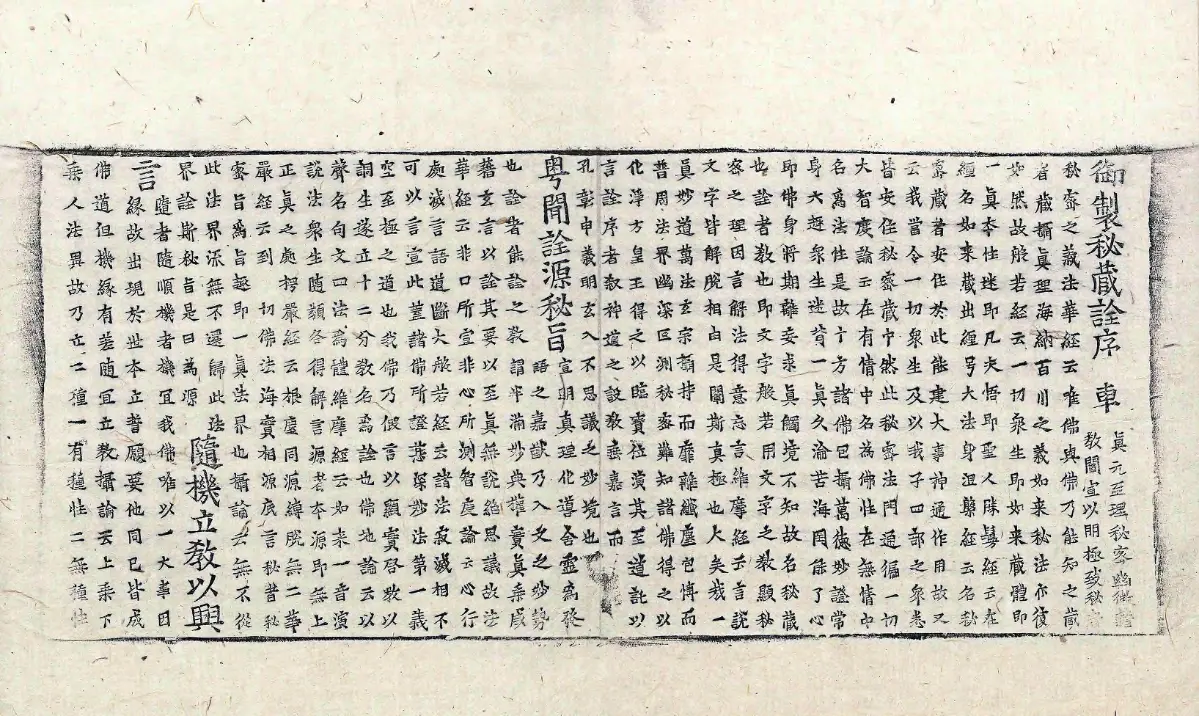 御製秘藏詮序 車 眞元至理秘密幽微
教闡宣以明極致秘
秘密之藏法華經云唯佛與佛乃能知之藏
者藏攝眞理海納百川之義如來秘法亦復
如然故般若經云一切衆生即如來藏體即
一眞本性迷即凡夫悟即聖人勝鬘經云在
纏名如来藏出經号大法身涅槃經云名秘
密藏者安住於此能建大事神通作用故又
云我當令一切衆生及以我子四部之衆悉
皆安住秘密藏中然此秘密法門通徧一切
大智度論云在有情中名為佛性在無情中
名為法性是故十方諸佛已攝萬德妙證常
身六趣衆生迷背一眞久淪苦海罔能了心
即佛身將期離妄求眞觸境不知故名秘藏
也詮者教也即文字般若用文字之教顯秘
密之理因言解法得意忘言維摩經云言說
文字皆解脫相自是闡斯真極也大矣哉一
眞妙道萬法玄宗揔持而靡離纖塵包博而
普周法界幽深叵測秘密難知諸佛得之以
化淨方皇王得之以臨寶位演其至道託以
言詮序者敘神道之設敎垂嘉言而
孔彰申義明玄入不思議之妙境也
粤聞詮源秘旨 宣明真理化導含靈為發
語之嘉猷乃入文之妙勢
也詮者能詮之教謂半滿妙典權實真乘咸
藉玄言以詮其要以至眞無說絶思議故法
華經云非口所宣非心所測智度論云心行
處滅言語道斷大般若經云諸法寂滅相不
可以言宣此葢諸佛所證甚深妙法第一義
空至極之道也我佛乃假言以顯實啓敎以
詞生遂立十二分教名為詮也佛地論云以
聲名句文四法為體維摩經云如来一音演
說法衆生隨類各得解言源者本源即無上
正眞之處楞嚴經云根塵同源縛脫無二華
嚴經云到一切佛法海實相源底言秘者秘
密旨為旨趣即一眞法界也攝論云無不從
此法界流無不還歸此法
界詮斯秘旨是曰為源 隨機立敎以興
言 隨者隨順機者機宜我佛唯以一大事因
緣故出現於世本立誓願要他同己皆成
佛道但機緣有差随宜立教攝論云上乘下
乘人法異故乃立二種一有種性二無種性